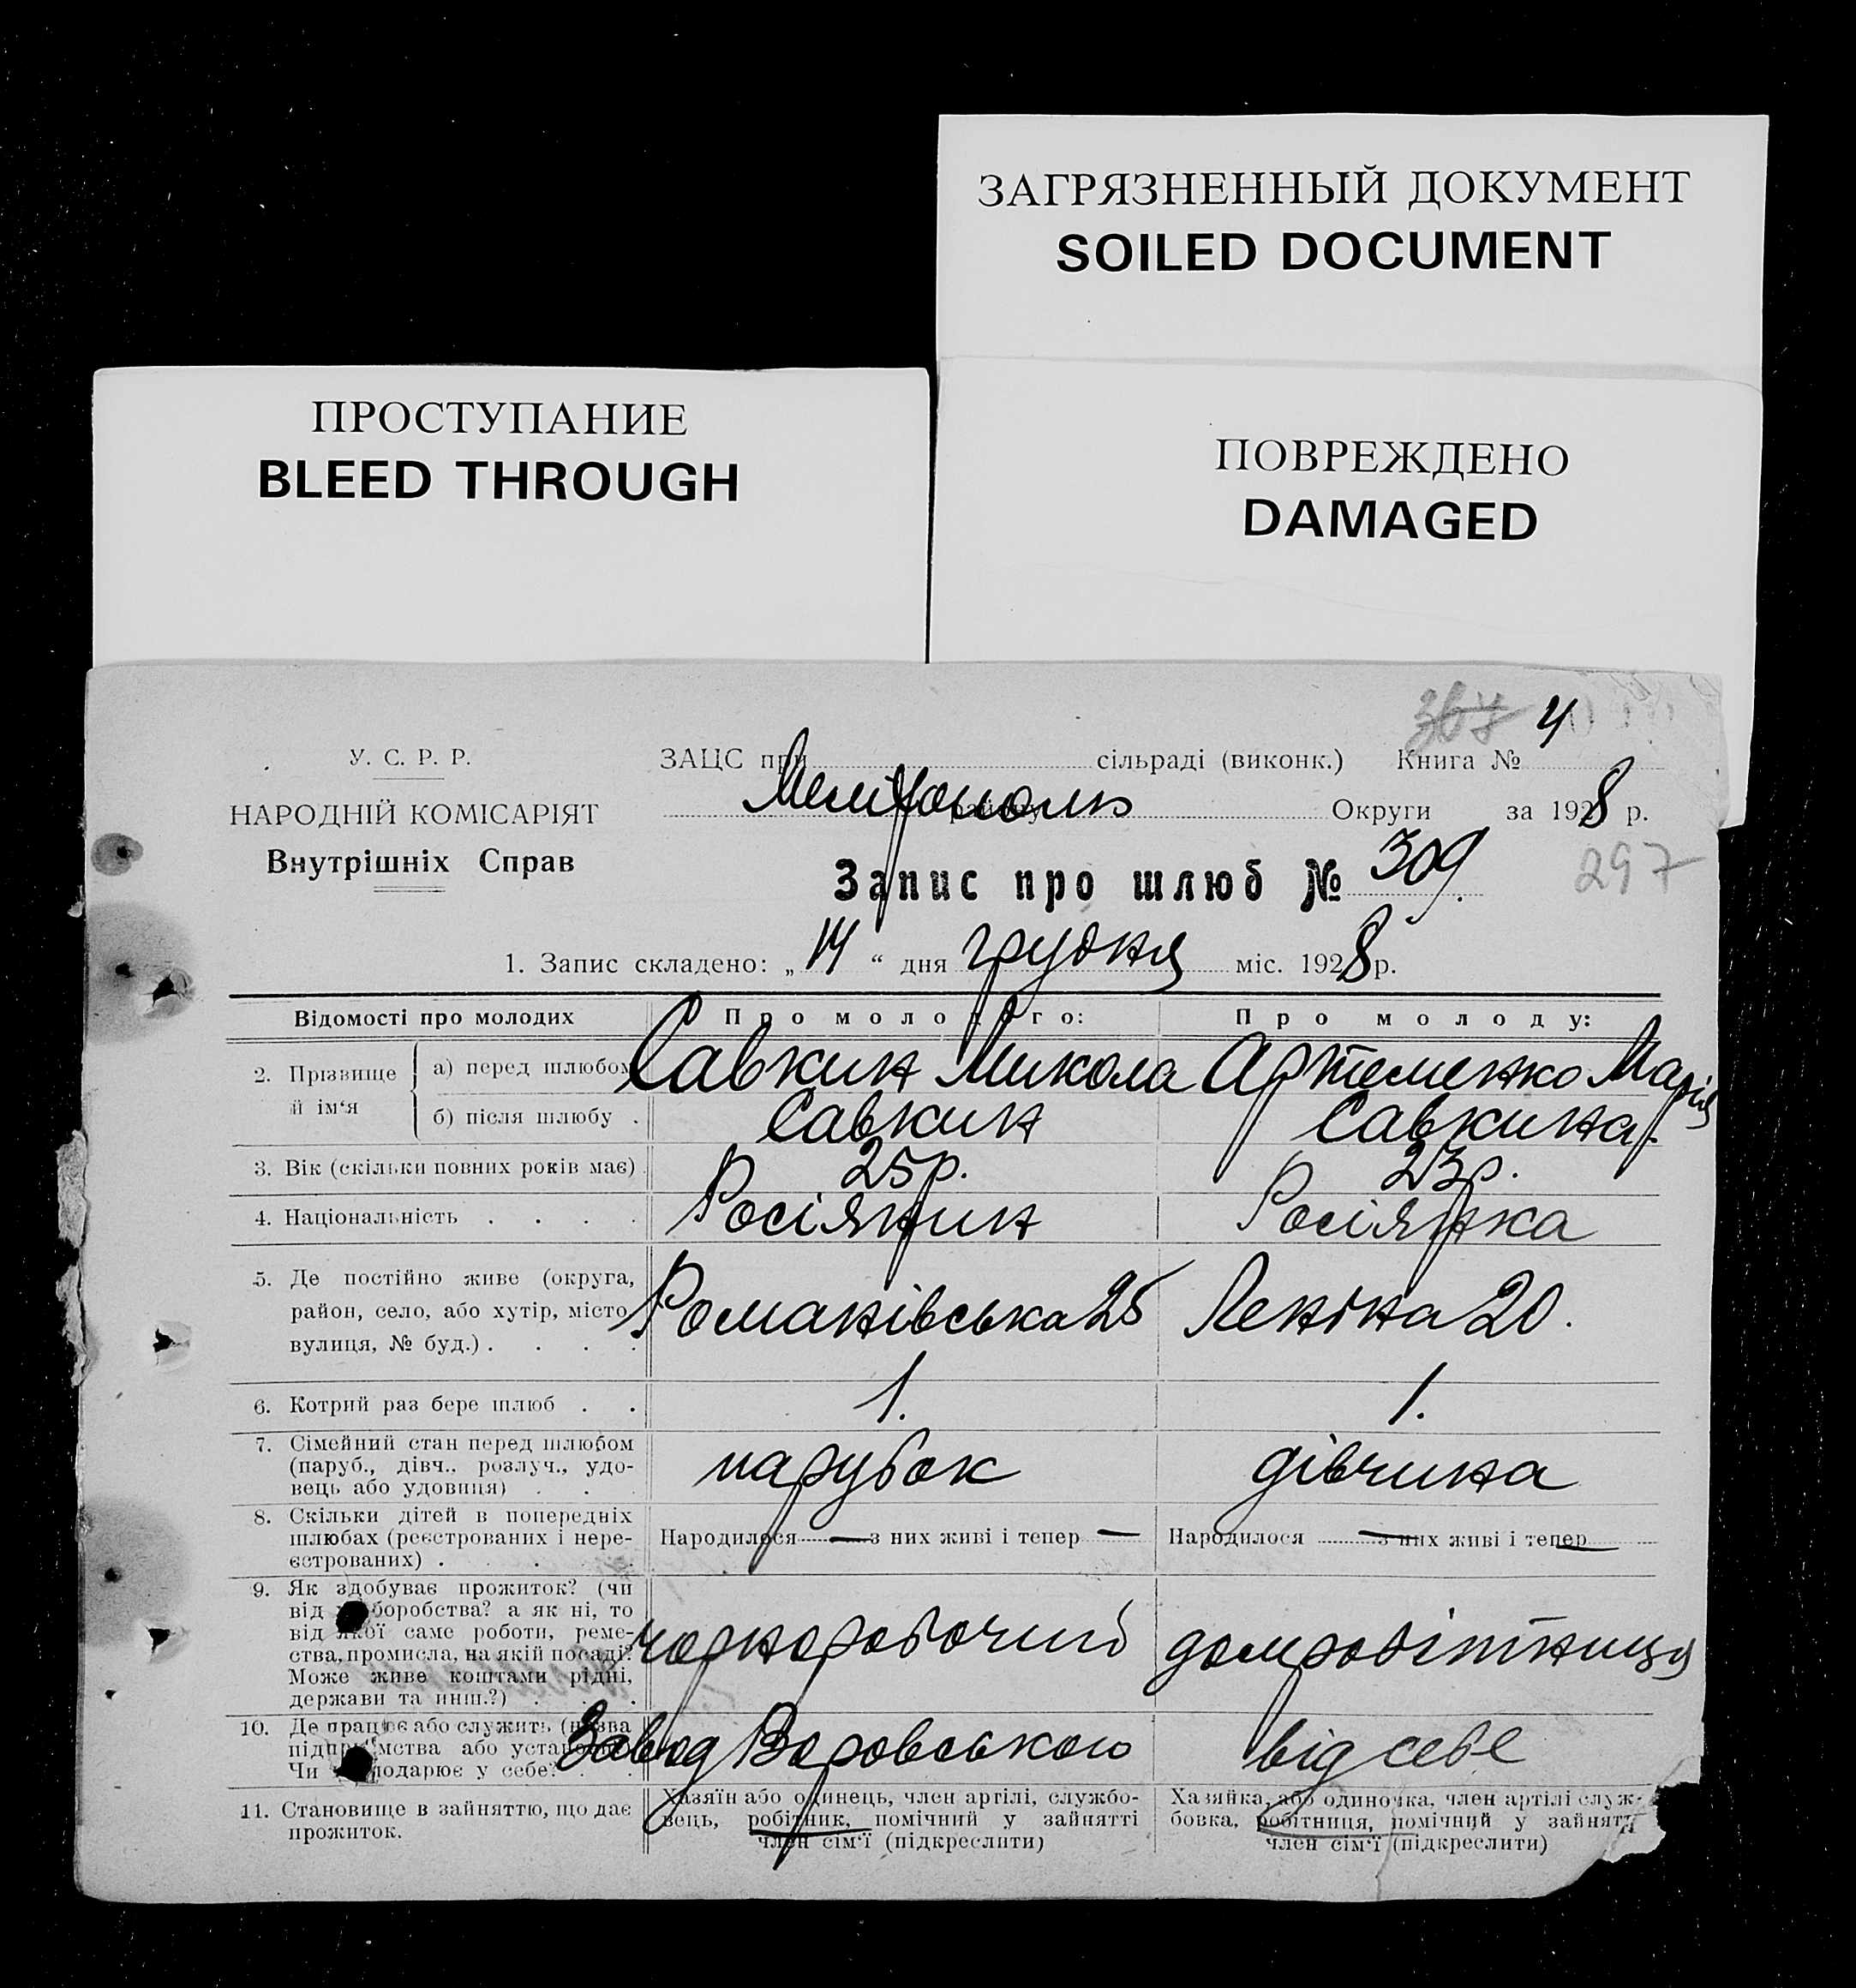 ЗАГРЯЗНЕННЫЙ ДОКУМЕНТ
SOILED DOCUMENT
ПРОСТУПАНИЕ
BLEED THROUGH
ПОВРЕЖДЕНО
DAMAGED
4
У. С. Р. Р.
ЗАЦС при сільраді (виконк.) Книга №
Мелитополь
району Округи за 1928 р.
НАРОДНІЙ КОМІСАРІЯТ
Внутрішніх Справ
Запис про шлюб № 309.
297
1. Запис складено: „14“ дня грудня міс. 1928 р.
Відомості про молодих
Про молодого:
Про молоду:
2. Прізвище й ім‘я
а) перед шлюбом
Савкин Микола
Артеменко Марія
б) після шлюбу .
Савкин
Савкина.
3. Вік (скільки повних років має) .
25р.
23р.
4. Національність . . . .
Росіянин
Росіянка
5. Де постійно живе (округа,
район, село, або хутір, місто,
вулиця, № буд.) . . . .
Романівська 25
Леніна 20.
6. Котрий раз бере шлюб . .
1.
1.
7. Сімейний стан перед шлюбом
(паруб., дівч., розлуч., удо-
вець або удовиця) . . .
парубок
дівчина
8. Скільки дітей в попередніх
шлюбах (реєстрованих і нере-
єстрованих) . . . . .
Народилося — з них живі і тепер —
Народилося — з них живі і тепер —
9. Як здобуває прожиток? (чи
від боробства? а як ні, то
від якої саме роботи, реме-
ства, промисла, на якій посаді?
Може живе коштами рідні,
держави та инш.?) . . .
чорноробочий
домробітниця
10. Де працює або служить (назва
підприємства або установи)
Чи господарює у себе? . .
Завод Воровського
від себе
11. Становище в зайняттю, що дає
прожиток.
Хазяїн або одинець, член артілі, службо-
вець, робітник, помічний у зайнятті
член сім‘ї (підкреслити)
Хазяйка, або одиночка, член артілі служ-
бовка, робітниця, помічний у зайнятт
член сім‘ї (підкреслити)